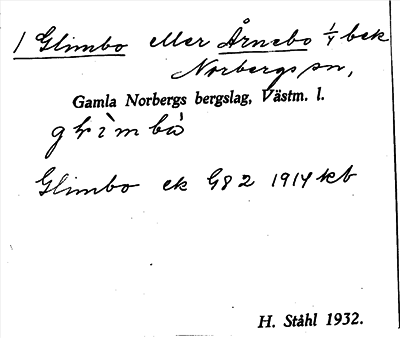 1 Glimbo eller Årnebo 1/4 bek
Norbergs sn,
Gamla Norbergs bergslag, Västm. l.
glìmbò
Glimbo ek G82 1914 kb
H. Ståhl 1932.